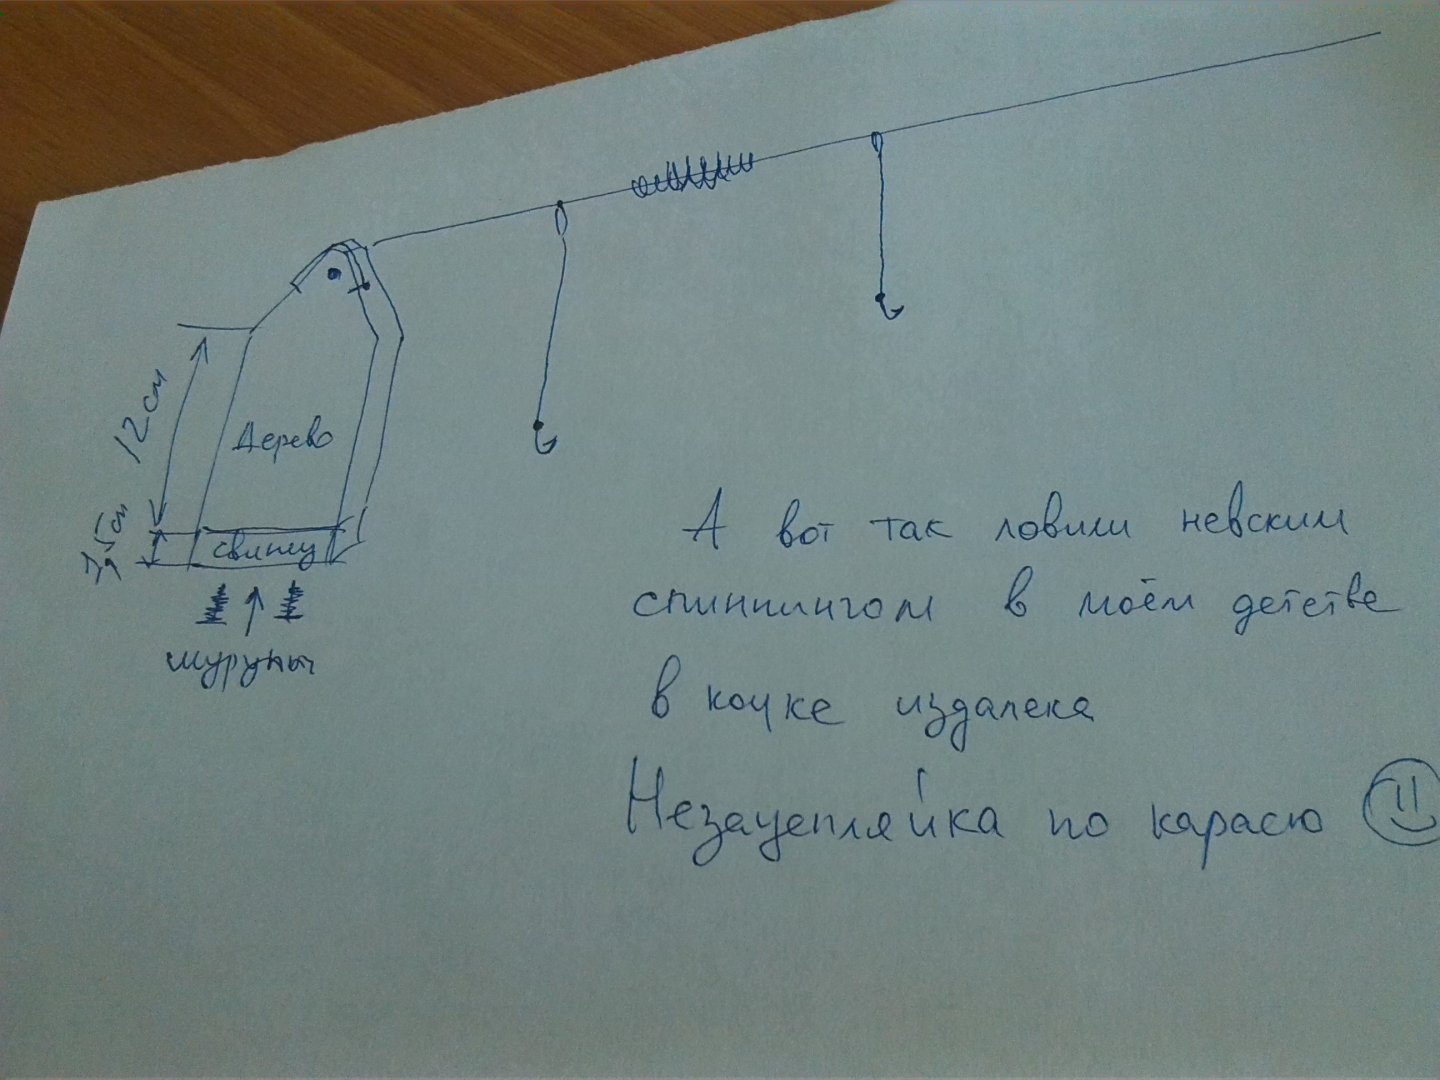 12 см
Дерево
3,5 см
свинец
шурупы
А вот так ловили невским
спиннингом в моём детстве
в коуке издалека
Незацепляйка по карасю